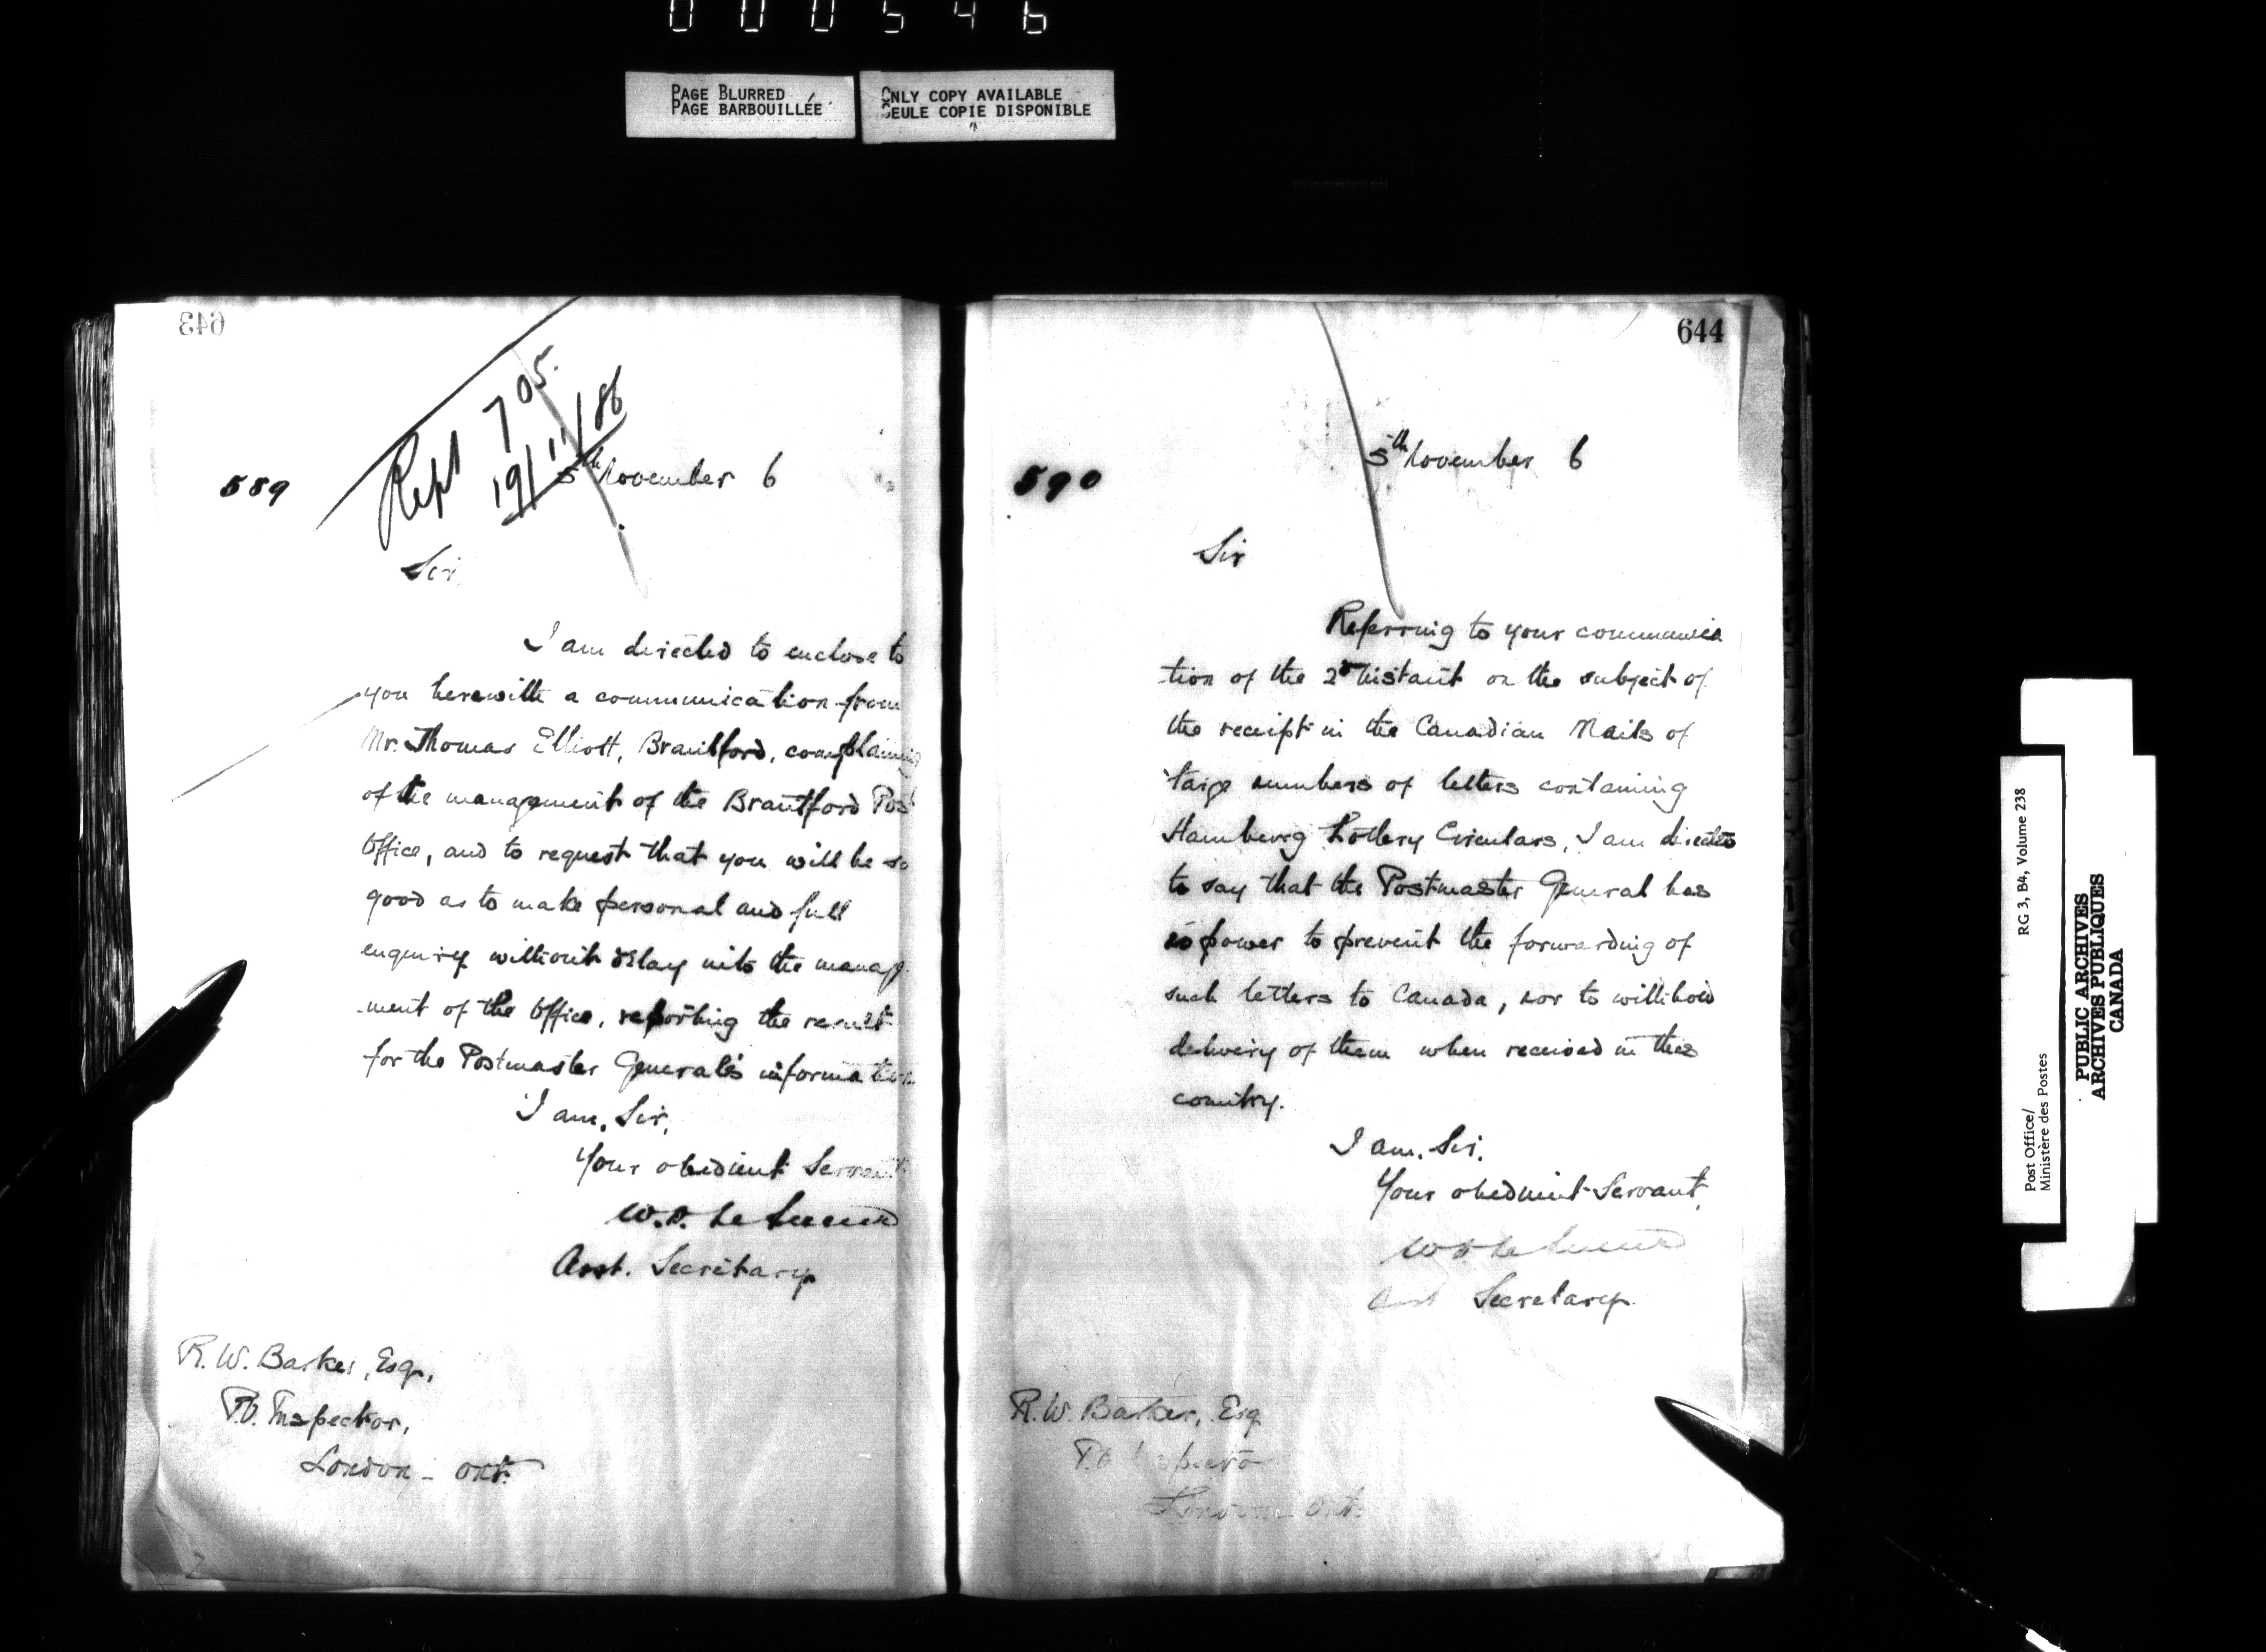 000546
PAGE BLURRED
PAGE BARBOUILLÉE
ONLY COPY AVAILABLE
SEULE COPIE DISPONIBLE
643
Rept 705.
19/11/86
589
5th November 6
Sir,
I am directed to enclose to
you herewith a communication from
Mr. Thomas Elliott, Brantford, complaining
of the management of the Brantford Post
Office, and to request that you will be so
good as to make personal and full
enquiry without delay into the manage
ment of the Office, reporting the result
for the Postmaster General's information
I am, Sir,
Your obedient Servant
W. D. Le Sueur
Asst. Secretary
R. W. Barker, Esq.,
P.O. Inspector,
London - Ont.
644
590
5th November 6
Sir
Referring to your communica
tion of the 2d instant on the subject of
the receipt in the Canadian Mails of
large numbers of letters containing
Hamburg Lottery Circulars, I am directed
to say that the Postmaster General has
no power to prevent the forwarding of
such letters to Canada, nor to withhold
delivery of them when received in this
country.
I am, Sir,
Your obedient Servant,
W D Le Sueur
Asst Secretary
R. W. Barker, Esq
P.O Inspector
London - Ont.
Post Office/
Ministère des Postes
RG 3, B4, Volume 238
PUBLIC ARCHIVES
ARCHIVES PUBLIQUES
CANADA